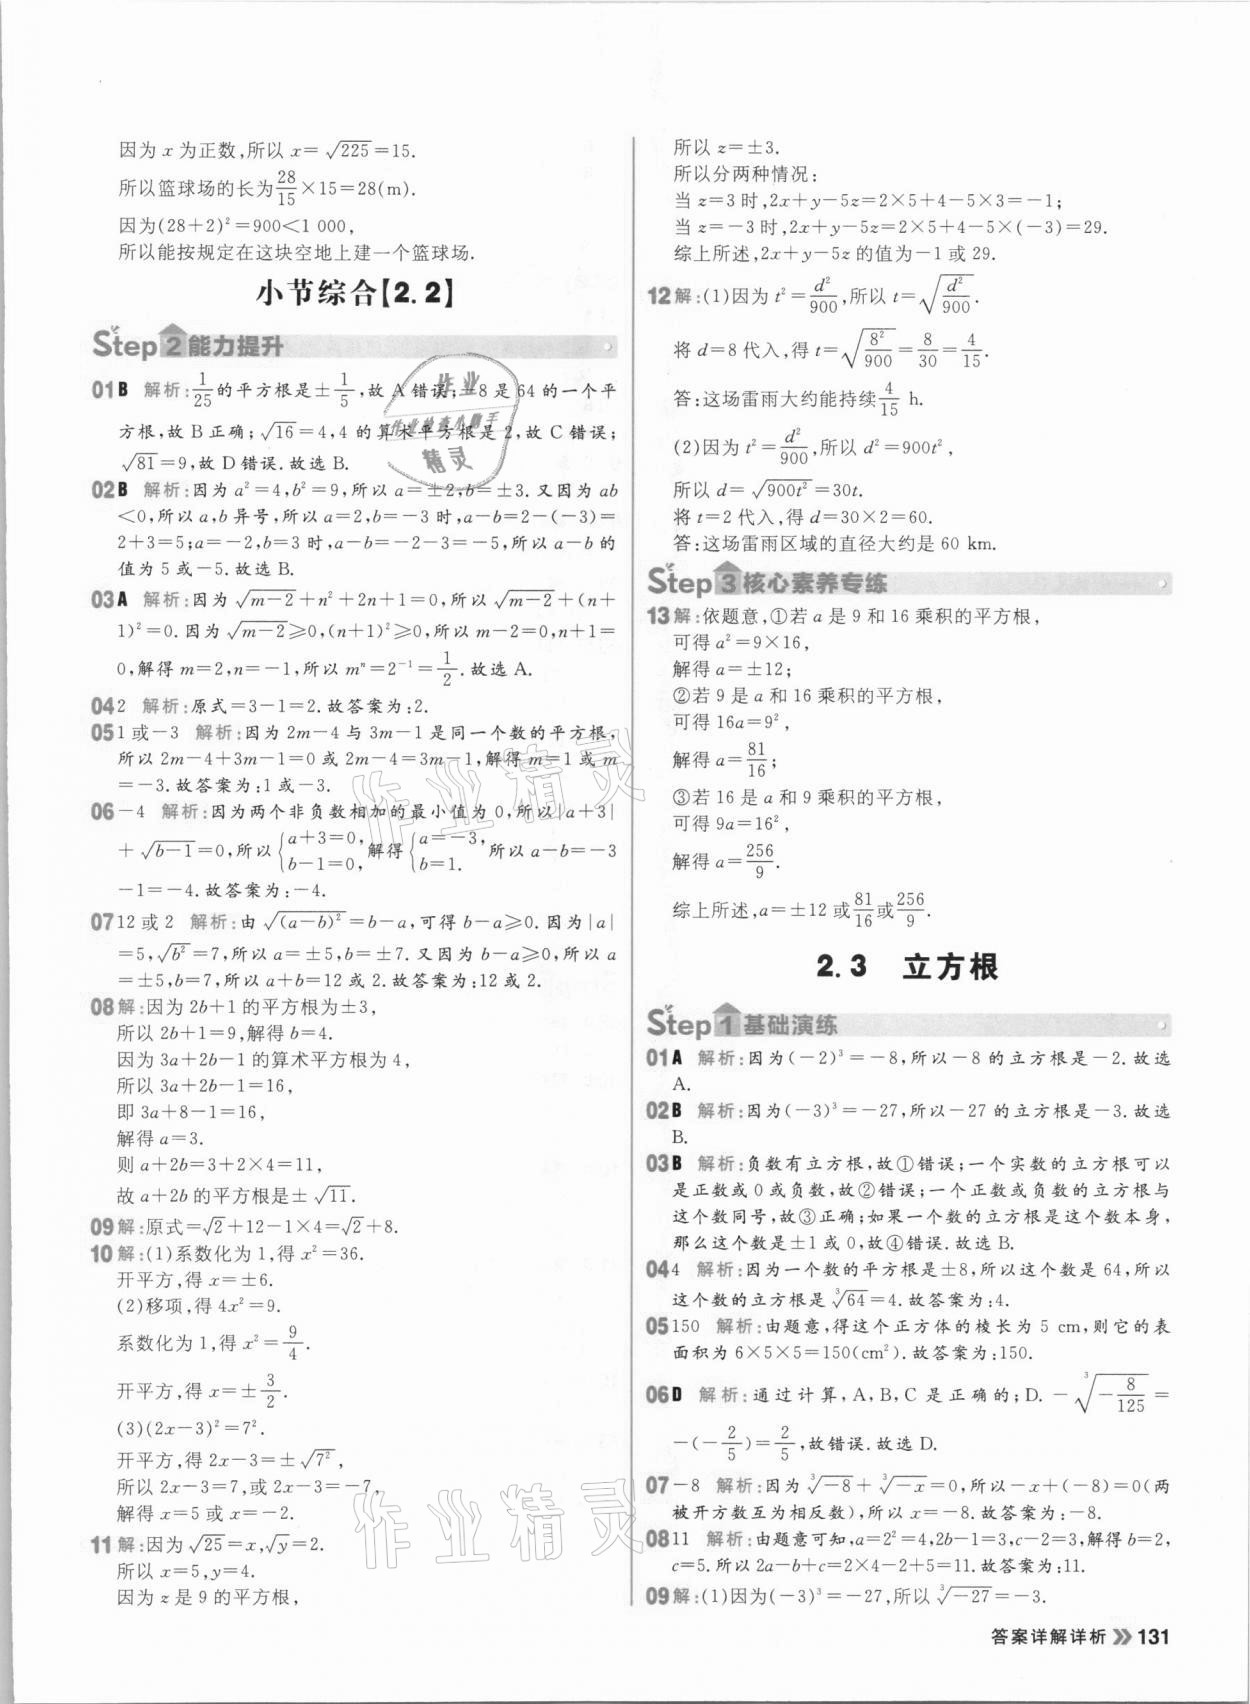 因为 x 为正数,所以 x=√225=15.
所以篮球场的长为28/15×15=28(m).
因为(28+2)²=900<1 000,
所以能按规定在这块空地上建一个篮球场.
小节综合【2.2】
Step 2 能力提升
01 B 解析:1/25的平方根是±1/5,故 A 错误;-8 是 64 的一个平
方根,故 B 正确;√16=4,4 的算术平方根是 2,故 C 错误;
√81=9,故 D 错误.故选 B.
02 B 解析:因为 a²=4,b²=9,所以 a=±2,b=±3.又因为 ab
<0,所以 a,b 异号,所以 a=2,b=-3 时,a-b=2-(-3)=
2+3=5;a=-2,b=3 时,a-b=-2-3=-5,所以 a-b 的
值为 5 或-5.故选 B.
03 A 解析:因为 √m-2+n²+2n+1=0,所以 √m-2+(n+
1)²=0.因为 √m-2≥0,(n+1)²≥0,所以 m-2=0,n+1=
0,解得 m=2,n=-1,所以 mⁿ=2⁻¹=1/2.故选 A.
04 2 解析:原式=3-1=2.故答案为:2.
05 1 或-3 解析:因为 2m-4 与 3m-1 是同一个数的平方根,
所以 2m-4+3m-1=0 或 2m-4=3m-1,解得 m=1 或 m
=-3.故答案为:1 或-3.
06 -4 解析:因为两个非负数相加的最小值为 0,所以|a+3|
+√b-1=0,所以{a+3=0, b-1=0,解得{a=-3, b=1. 所以 a-b=-3
-1=-4.故答案为:-4.
07 12 或 2 解析:由 √(a-b)²=b-a,可得 b-a≥0.因为|a|
=5,√b²=7,所以 a=±5,b=±7.又因为 b-a≥0,所以 a
=±5,b=7,所以 a+b=12 或 2.故答案为:12 或 2.
08 解:因为 2b+1 的平方根为±3,
所以 2b+1=9,解得 b=4.
因为 3a+2b-1 的算术平方根为 4,
所以 3a+2b-1=16,
即 3a+8-1=16,
解得 a=3.
则 a+2b=3+2×4=11,
故 a+2b 的平方根是±√11.
09 解:原式=√2+12-1×4=√2+8.
10 解:(1)系数化为 1,得 x²=36.
开平方,得 x=±6.
(2)移项,得 4x²=9.
系数化为 1,得 x²=9/4.
开平方,得 x=±3/2.
(3)(2x-3)²=7².
开平方,得 2x-3=±√7²,
所以 2x-3=7,或 2x-3=-7,
解得 x=5 或 x=-2.
11 解:因为 √25=x,√y=2.
所以 x=5,y=4.
因为 z 是 9 的平方根,
所以 z=±3.
所以分两种情况:
当 z=3 时,2x+y-5z=2×5+4-5×3=-1;
当 z=-3 时,2x+y-5z=2×5+4-5×(-3)=29.
综上所述,2x+y-5z 的值为-1 或 29.
12 解:(1)因为 t²=d²/900,所以 t=√(d²/900).
将 d=8 代入,得 t=√(8²/900)=8/30=4/15.
答:这场雷雨大约能持续4/15 h.
(2)因为 t²=d²/900,所以 d²=900t²,
所以 d=√900t²=30t.
将 t=2 代入,得 d=30×2=60.
答:这场雷雨区域的直径大约是 60 km.
Step 3 核心素养专练
13 解:依题意,①若 a 是 9 和 16 乘积的平方根,
可得 a²=9×16,
解得 a=±12;
②若 9 是 a 和 16 乘积的平方根,
可得 16a=9²,
解得 a=81/16;
③若 16 是 a 和 9 乘积的平方根,
可得 9a=16²,
解得 a=256/9.
综上所述,a=±12 或81/16或256/9.
2.3 立方根
Step 1 基础演练
01 A 解析:因为(-2)³=-8,所以-8 的立方根是-2.故选
A.
02 B 解析:因为(-3)³=-27,所以-27 的立方根是-3.故选
B.
03 B 解析:负数有立方根,故①错误;一个实数的立方根可以
是正数或 0 或负数,故②错误;一个正数或负数的立方根与
这个数同号,故③正确;如果一个数的立方根是这个数本身,
那么这个数是±1 或 0,故④错误.故选 B.
04 4 解析:因为一个数的平方根是±8,所以这个数是 64,所以
这个数的立方根是 ∛64=4.故答案为:4.
05 150 解析:由题意,得这个正方体的棱长为 5 cm,则它的表
面积为 6×5×5=150(cm²).故答案为:150.
06 D 解析:通过计算,A,B,C 是正确的;D.-∛(-8/125)=
-(-2/5)=2/5,故错误.故选 D.
07 -8 解析:因为 ∛-8+∛-x=0,所以-x+(-8)=0(两
被开方数互为相反数),所以 x=-8.故答案为:-8.
08 11 解析:由题意可知,a=2²=4,2b-1=3,c-2=3,解得 b=2,
c=5.所以 2a-b+c=2×4-2+5=11.故答案为:11.
09 解:(1)因为(-3)³=-27,所以 ∛-27=-3.
答案详解详析 》 131
作业
作业检查小助手
精灵
作业精灵
作业精灵